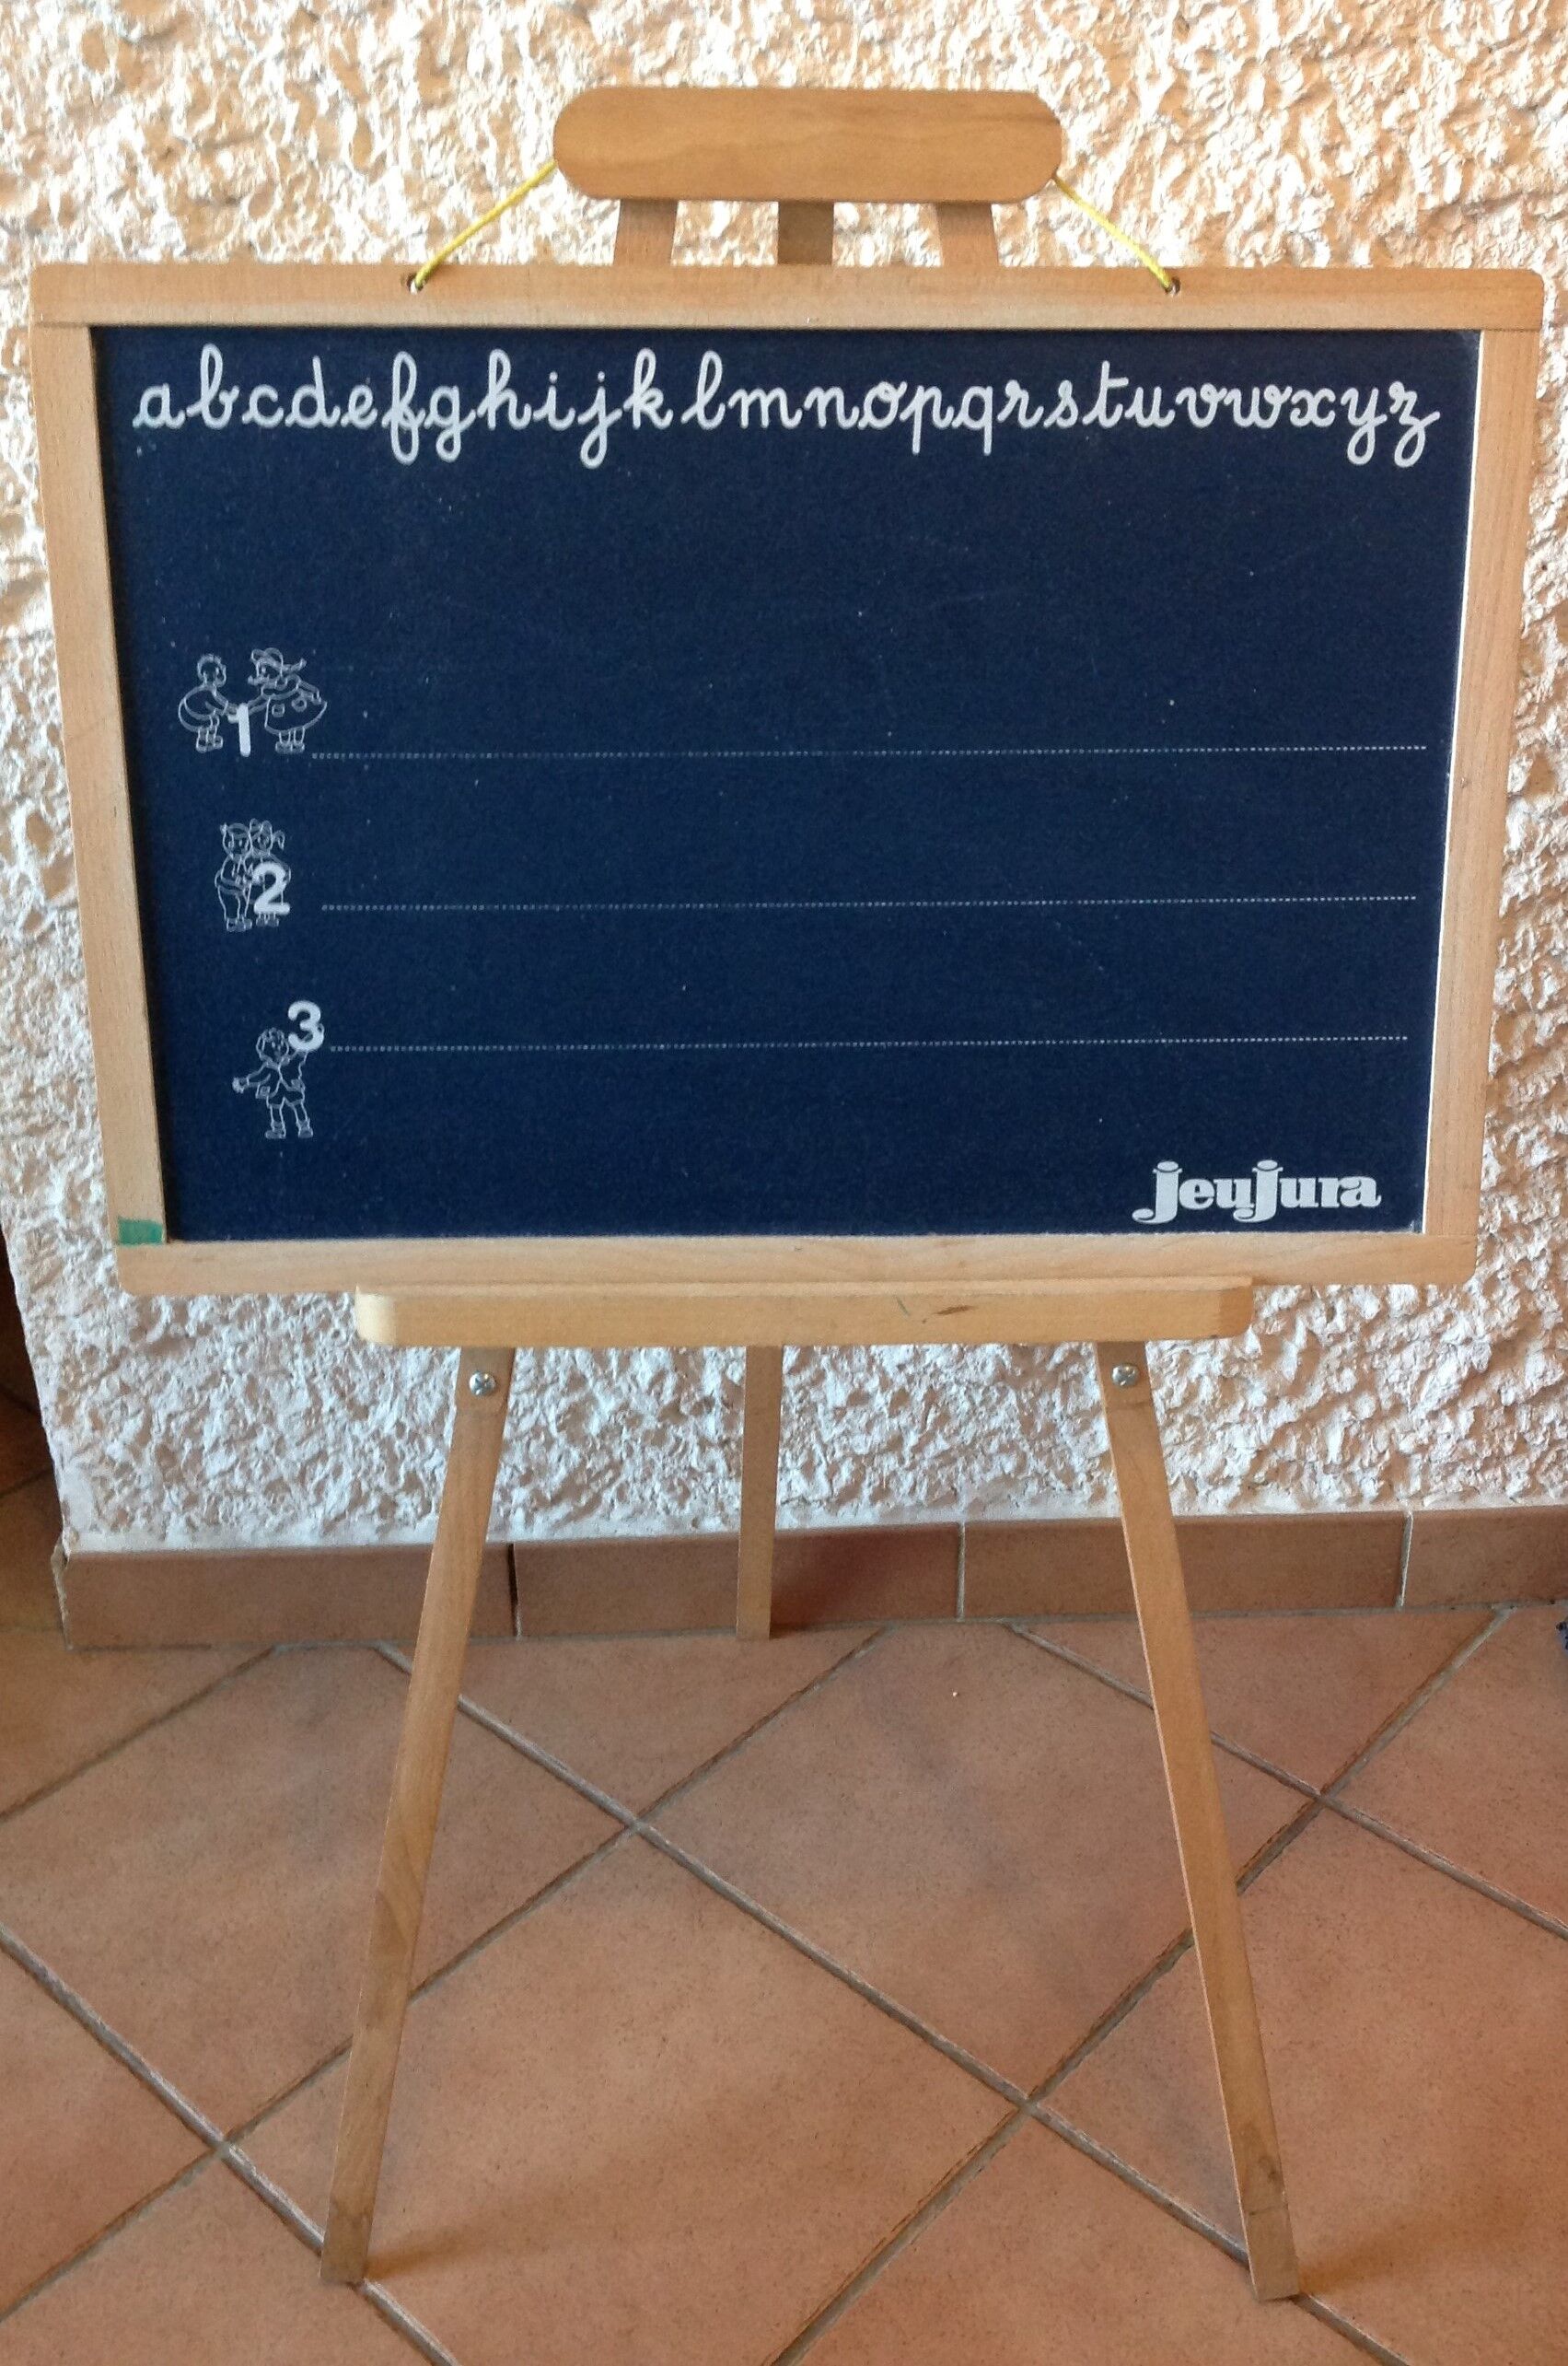 abcdefghijklmnopqrstuvwxyz
1
2
3
jeujura